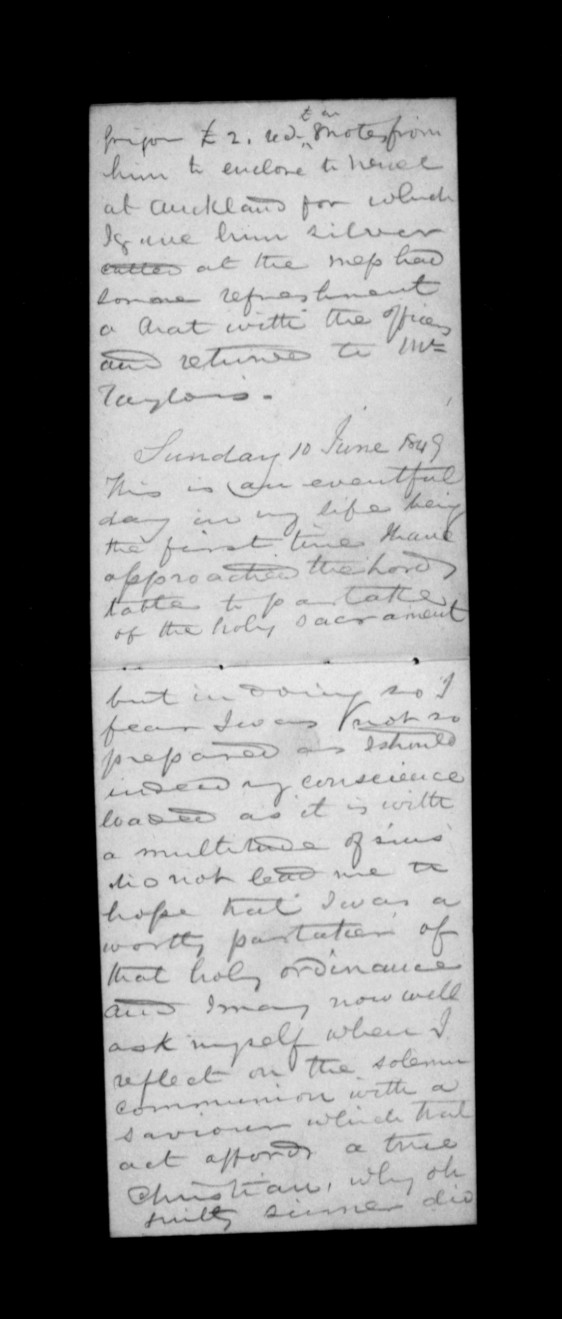 £2. notes from
him to enclose to
at Auckland for which
I gave him silver
called at the mess had
some refreshment
a chat with the officers
and returned to Mr
Taylors.
Sunday 10 June 1849
This is an eventful
day in my life being
the first time I have
approached the Lords
table to partake
of the holy sacrament
but in doing so I
fear I was not so
prepared as I should
indeed my conscience
loaded as it is with
a multitude of sins
did not lead me to
hope that I was a
worthy partaker of
that holy ordinance
and I may now well
ask myself when I
reflect on the solemn
communion with a
saviour which that
act affords a true
Christian, why oh
guilty sinner did